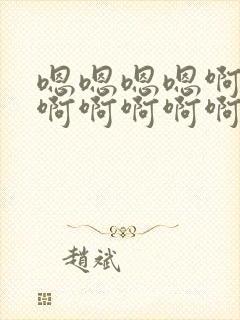 嗯嗯嗯嗯啊
啊啊啊啊啊
趙斌